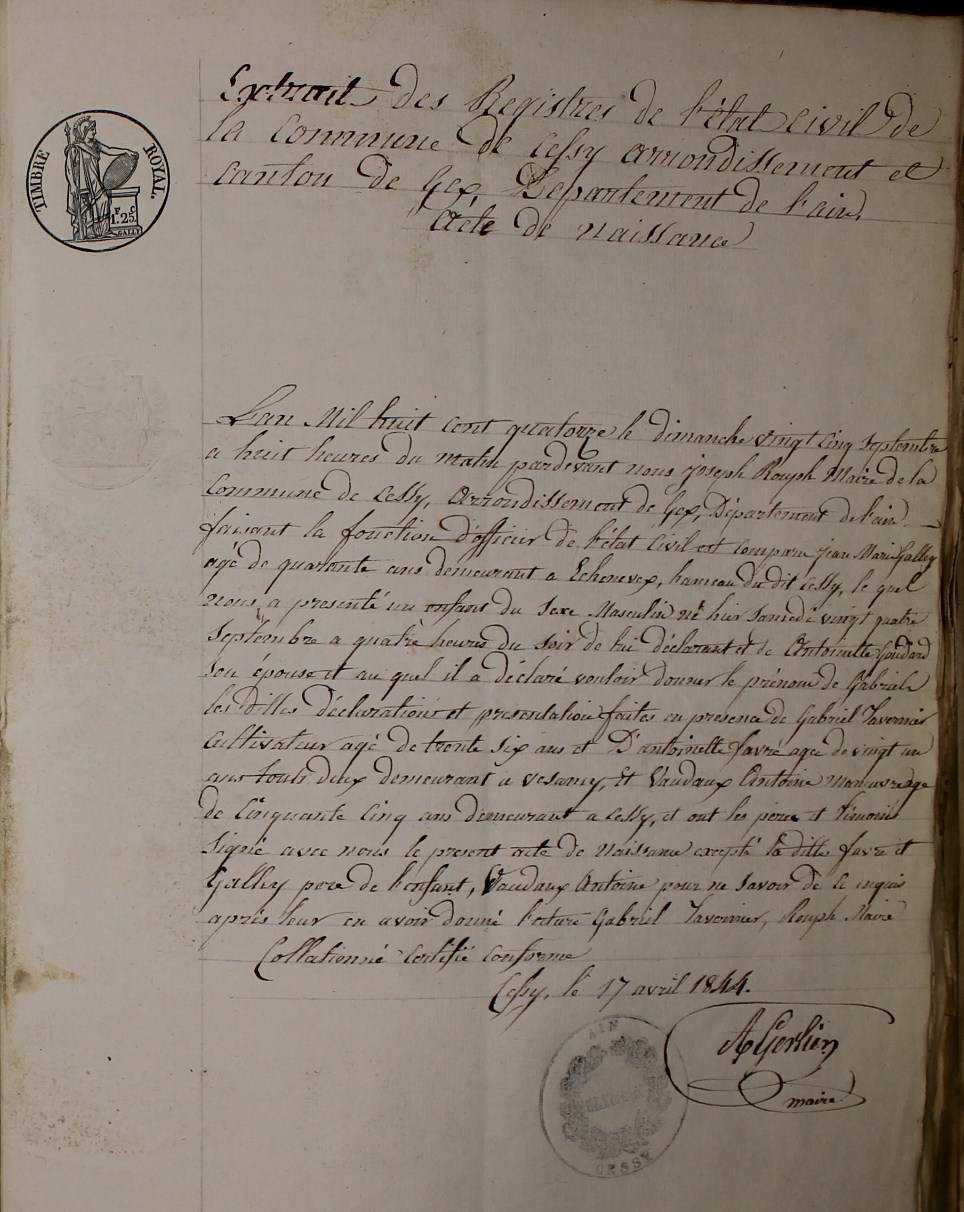 TIMBRE ROYAL.
1F. 25C
Extrait des Registres de l'état civil de
la commune de Cessy arrondissement et
canton de Gex, Departement de l'ain.
Acte de naissance
L'an Mil huit cent quatorze le dimanche vingt cinq septembre
a huit heures du matin pardevant nous joseph Rouph Maire de la
commune de Cessy, arrondissement de Gex, Département de l'ain
faisant la fonction d'officier de l'état civil est comparu jean Marie Galley
agé de quarante ans demeurant a Echenevex, hameau du dit Cessy, le quel
nous a presenté un enfant du sexe Masculin né hier samedi vingt quatre
septembre a quatre heures du soir de lui déclarant et de Antoinette Goudard
son épouse et au quel il a déclaré vouloir donner le prénom de Gabriel
les dittes déclaration et presentation faites en presence de Gabriel Tavernier
cultivateur agé de trente six ans et D'antoinette favre agée de vingt un
ans touts deux demeurant a vesancy, Et Vaudaux Antoine manœuvre age
de Cinquante Cinq ans demeurant a Cessy, et ont les pere et temoins
signé avec nous le present acte de Naissance excepté la ditte favre et
Galley pere de l'enfant, Vaudaux Antoine pour ne savoir de ce enquis
aprés leur en avoir donné lecture Gabriel Tavernier, Rouph Maire
Collationné certifié conforme
Cessy, le 17 avril 1844.
maire
AIN
CESSY